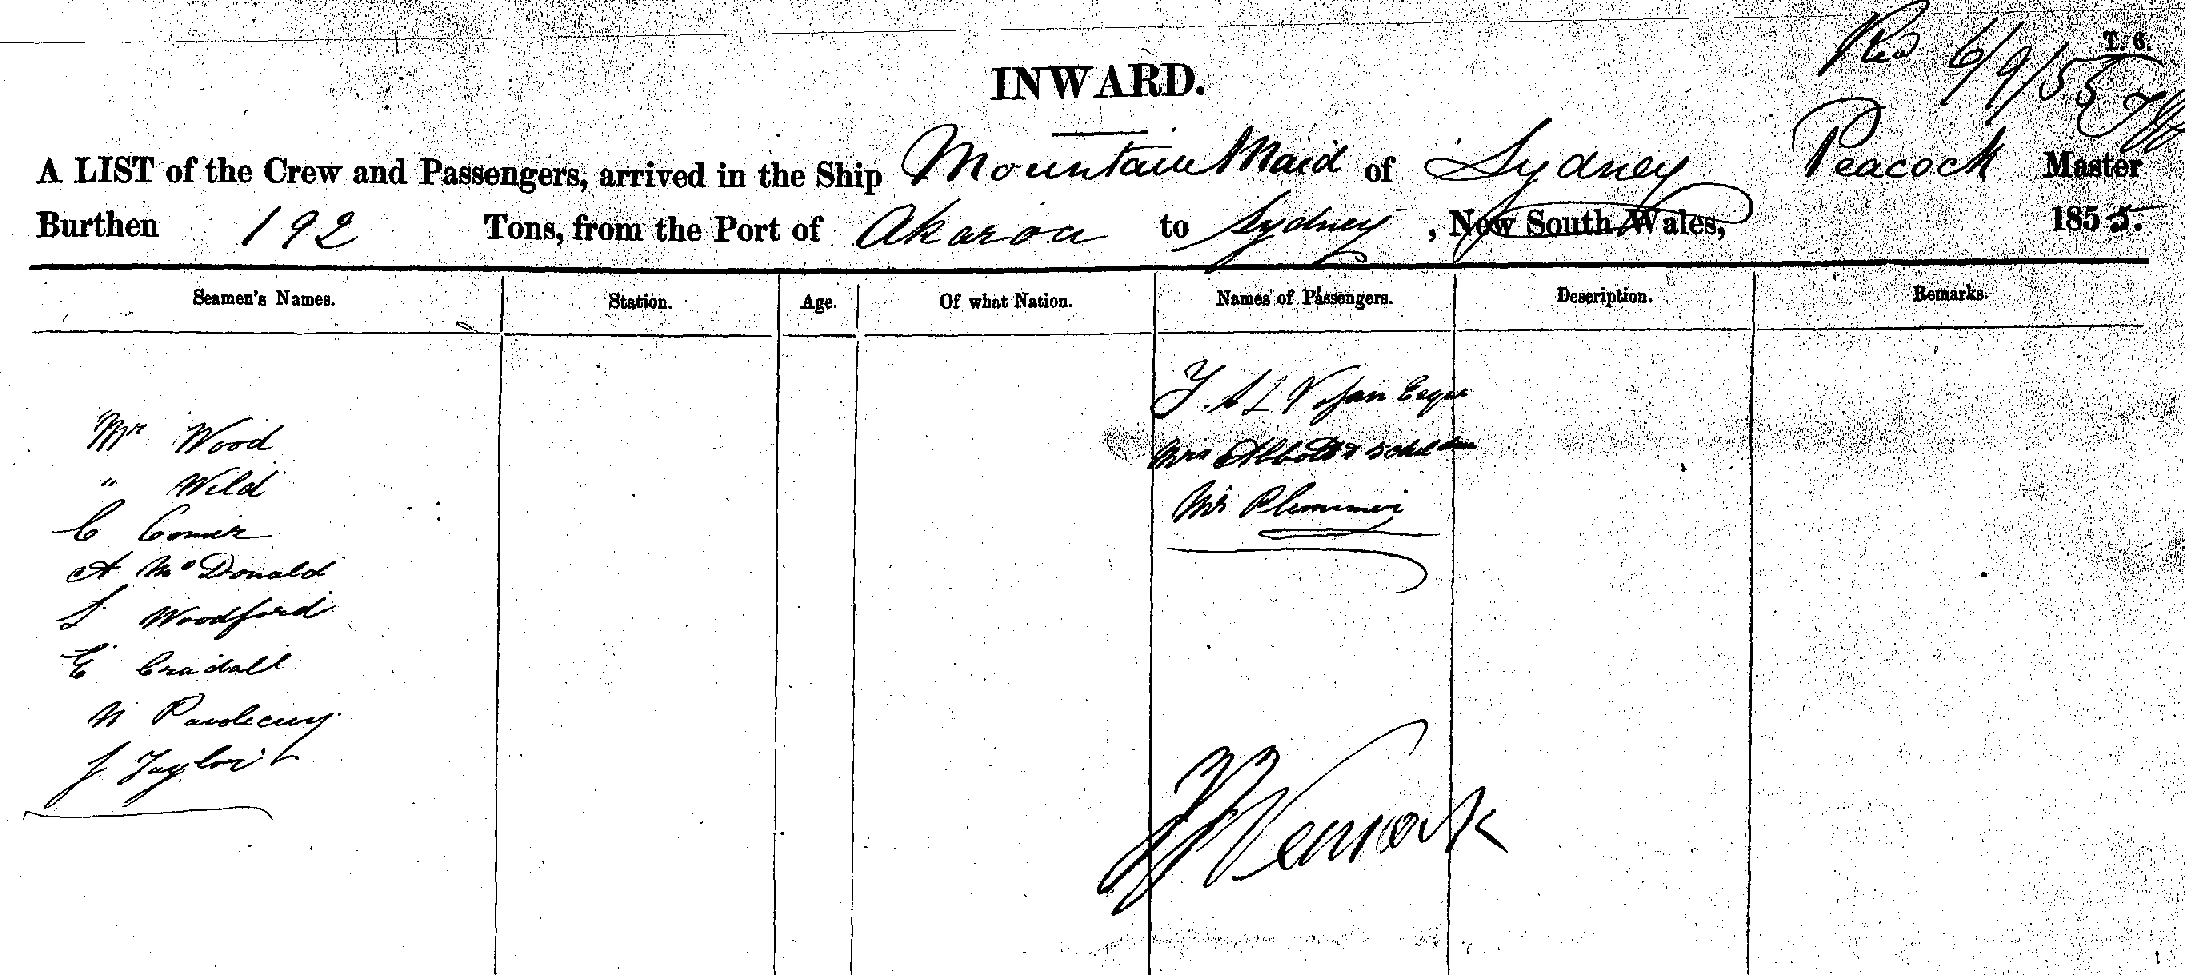 T. 6.
6/9/55
INWARD.
A LIST of the Crew and Passengers, arrived in the Ship Mountain Maid of Sydney Peacock Master
Burthen 192 Tons, from the Port of Akaroa to Sydney, New South Wales, 1855.
Seamen's Names. Station. Age. Of what Nation. Names of Passengers. Description. Remarks.
Esqre
Mr Wood
Mrs Abbott &
" Wild
Mr Plummer
C Comer
A McDonald
Woodford
E Cradall
J Taylor